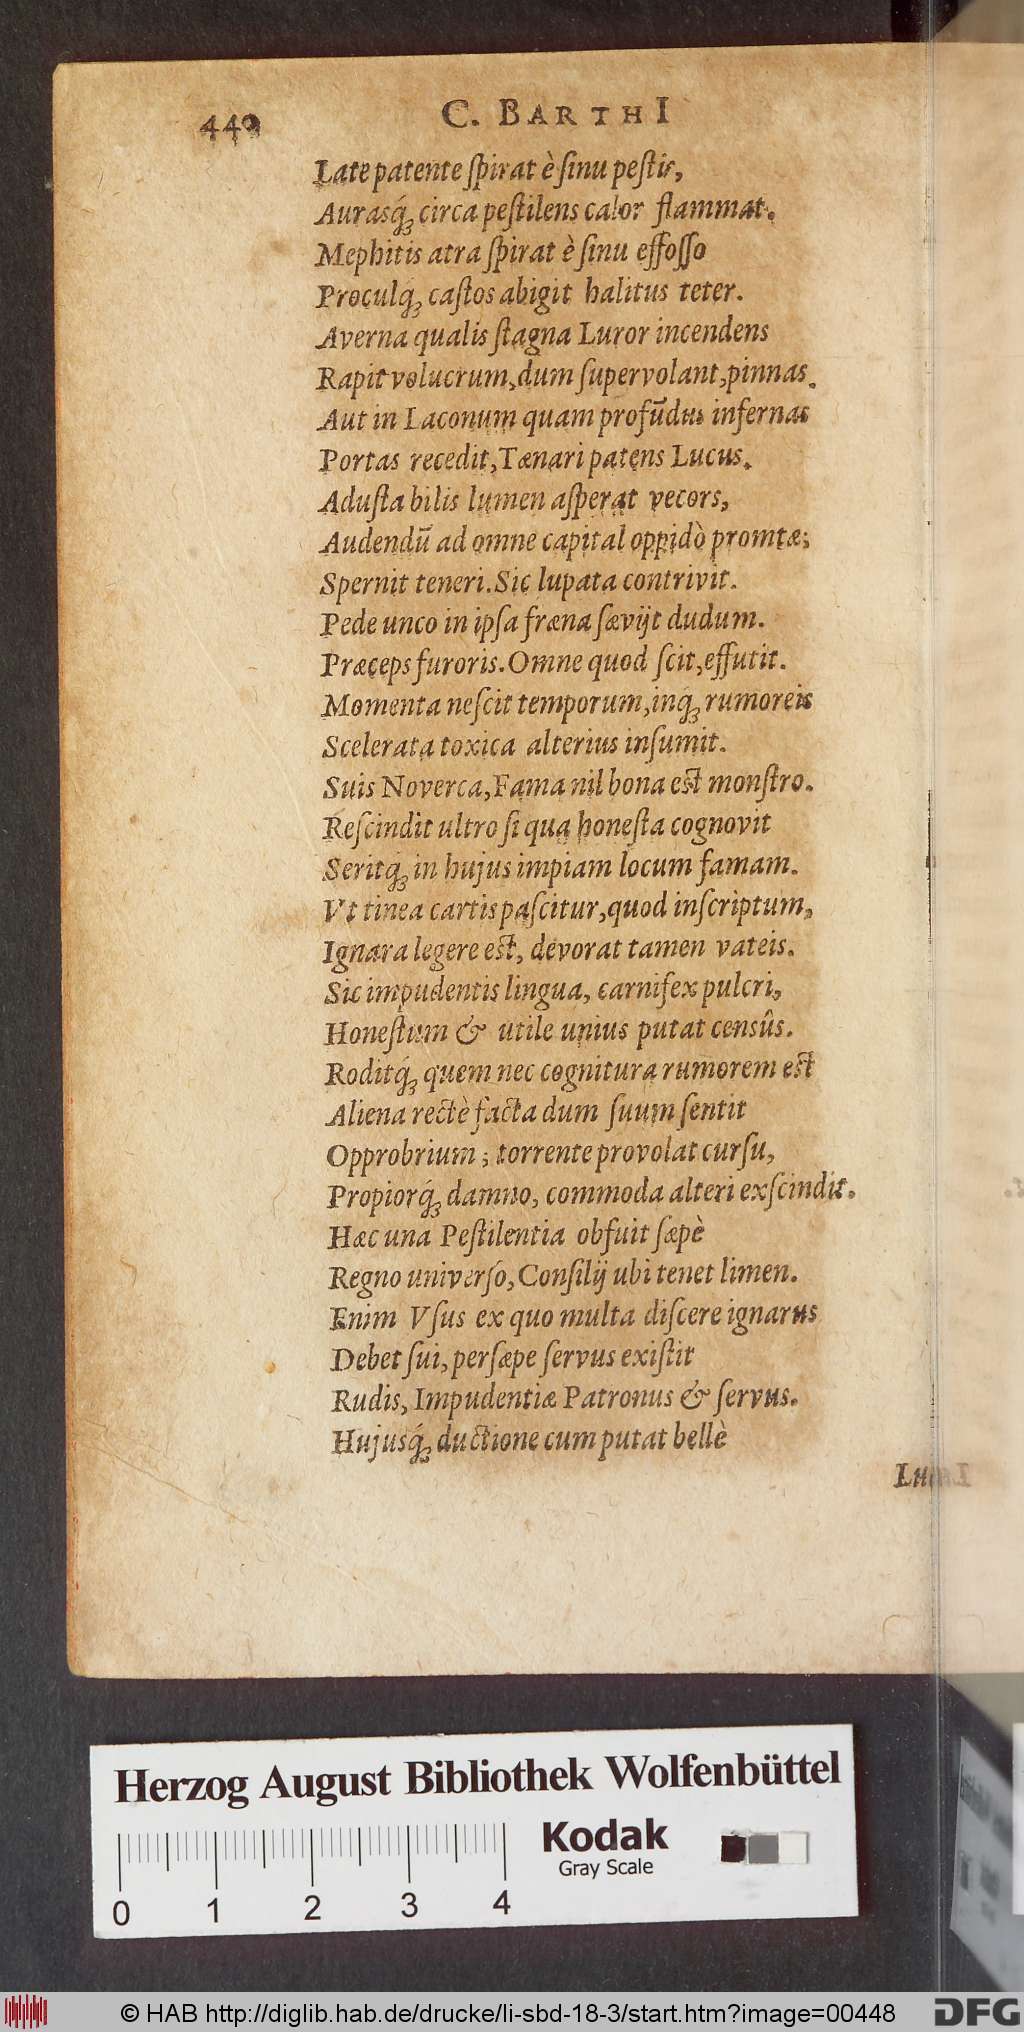 440 C. BARTHI
Late patente ſpirat è ſinu peſtis,
Auraſq́; circa peſtilens calor flammat.
Mephitis atra ſpirat è ſinu effoſſo
Proculq́; caſtos abigit halitus teter.
Averna qualis ſtagna Luror incendens
Rapit volucrum, dum ſupervolant, pinnas.
Aut in Laconum quam profūdus infernas
Portas recedit, Tænari patens Lucus.
Aduſta bilis lumen aſperat vecors,
Audendū ad omne capital oppidò promtæ;
Spernit teneri. Sic lupata contrivit.
Pede unco in ipſa fræna ſævijt dudum.
Præceps furoris. Omne quod ſcit, effutit.
Momenta neſcit temporum, inq́; rumoreis
Scelerata toxica alterius inſumit.
Suis Noverca, Fama nil bona eſt monſtro.
Reſcindit ultro ſi qua honeſta cognovit
Seritq́; in hujus impiam locum famam.
Vt tinea cartis paſcitur, quod inſcriptum,
Ignara legere eſt, devorat tamen vateis.
Sic impudentis lingua, carnifex pulcri,
Honeſtum & utile unius putat censûs.
Roditq́; quem nec cognitura rumorem eſt
Aliena rectè facta dum ſuum ſentit
Opprobrium; torrente provolat curſu,
Propiorq́; damno, commoda alteri exſcindit.
Hæc una Peſtilentia obfuit ſæpè
Regno univerſo, Conſilij ubi tenet limen.
Enim Vſus ex quo multa diſcere ignarus
Debet ſui, perſæpe ſervus exiſtit
Rudis, Impudentiæ Patronus & ſervus.
Hujusq́; ductione cum putat bellè
Herzog August Bibliothek Wolfenbüttel
Kodak
Gray Scale
0 1 2 3 4
© HAB http://diglib.hab.de/drucke/li-sbd-18-3/start.htm?image=00448 DFG